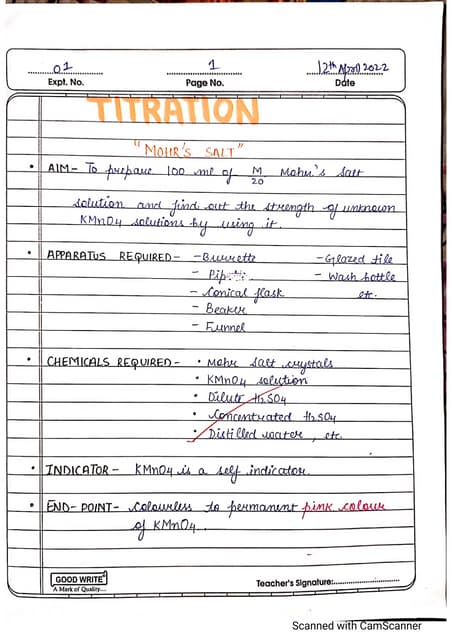 01
Expt. No.
1
Page No.
12th April 2022
Date
TITRATION
"MOHR'S SALT"
• AIM- To prepare 100 ml of M/20 Mohr's salt
solution and find out the strength of unknown
KMnO4 solutions by using it.
• APPARATUS REQUIRED- - Burrette - Glazed tile
- - Wash bottle
- Conical flask etc.
- Beaker
- Funnel
• CHEMICALS REQUIRED- • Mohr salt crystals
• KMnO4 solution
• Dilute H2SO4
• Concentrated H2SO4
• Distilled water, etc.
• INDICATOR- KMnO4 is a self indicator.
• END-POINT- Colourless to permanent pink colour
of KMnO4.
GOOD WRITE
A Mark of Quality...
Teacher's Signature:
Scanned with CamScanner